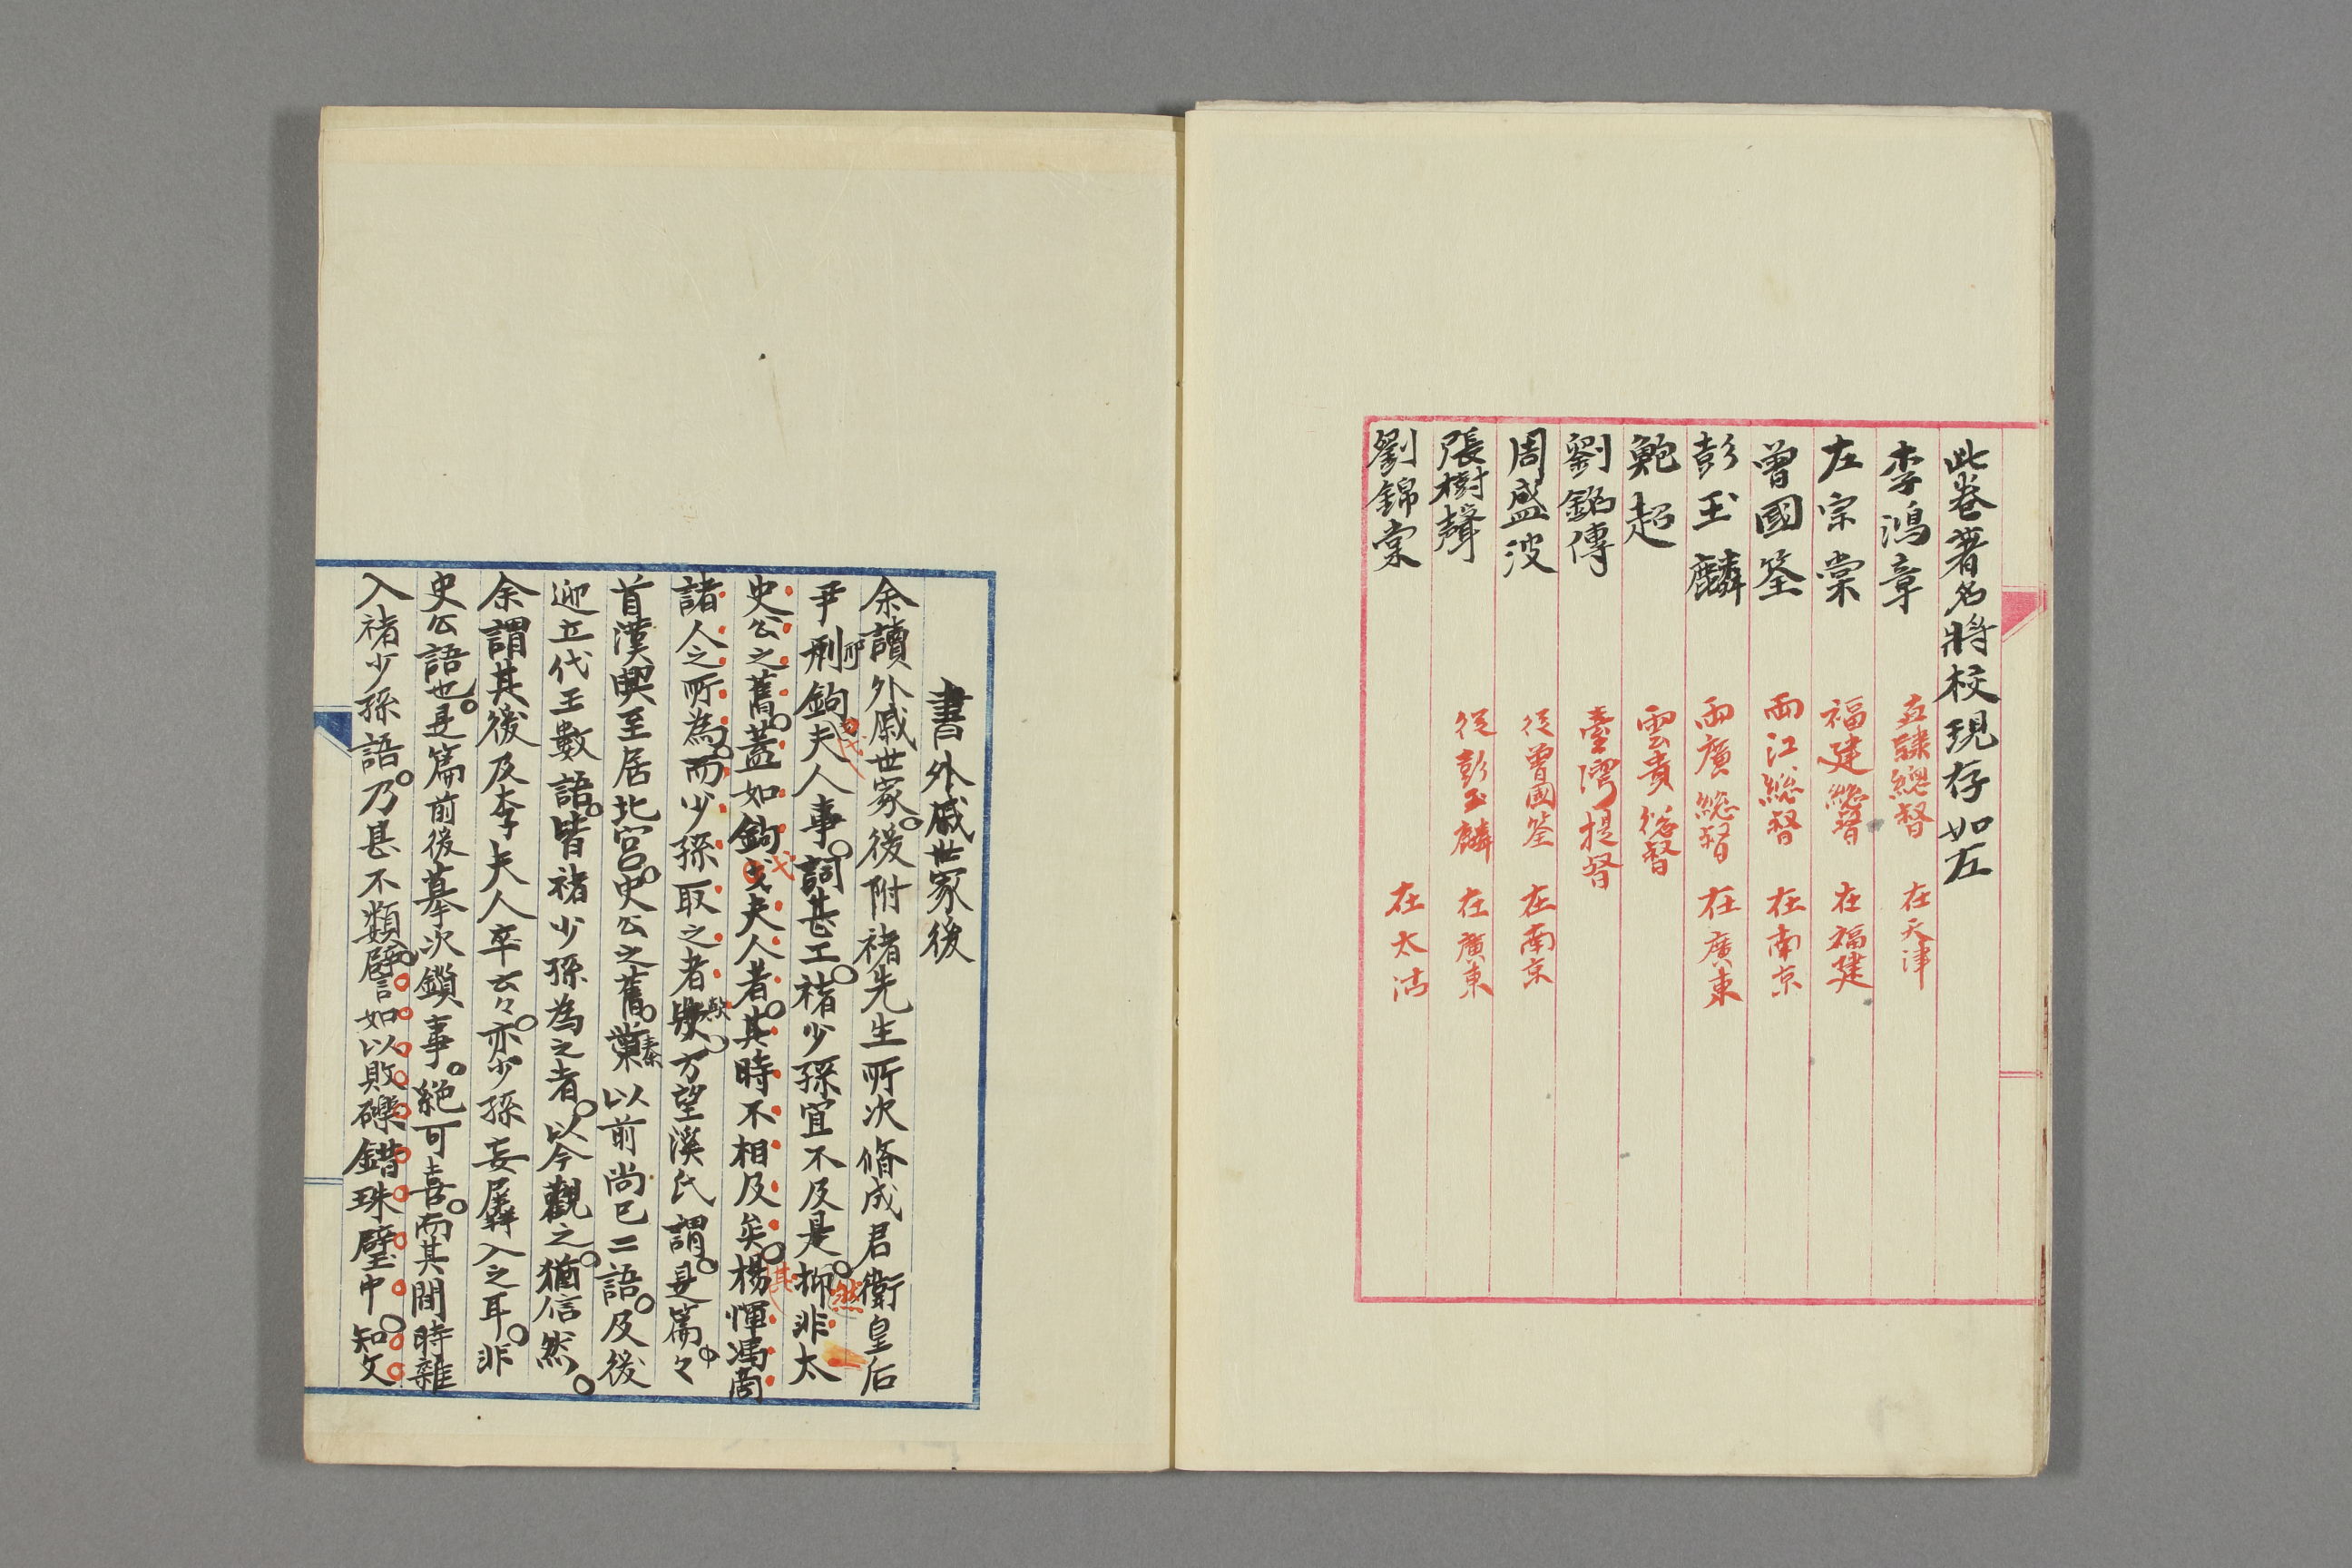 此卷著名將校現存如左
李鴻章 直隸總督 在天津
左宗棠 福建總督 在福建
曾國筌 両江總督 在南京
彭玉麟 両廣總督 在廣東
鮑超 雲貴總督
劉銘傳 臺灣提督
周盛波 從曾國筌 在南京
張樹聲 從彭玉麟 在廣東
劉錦棠 在太沽
書外戚世家後
余讀外戚世家。後附褚先生所次脩成君衛皇后
尹刑鉤夫人事。詞甚工。褚少孫宜不及是。抑非太
邢
弋
然
史公之舊。蓋如鉤弋夫人者。其時不相及矣。楊惲馮商
弋
其
諸人之所為。而少孫取之者歟。方望溪氏謂。是篇々
歟
首漢興至居北宮。史公之舊。葉以前尚已二語。及後
秦
迎立代王數語。皆褚少孫為之者。以今觀之。猶信然。
余謂其後及李夫人卒云々。亦少孫妄羼入之耳。非
史公語也。是篇前後摹次鎖事。絕可喜。而其間時雜
入褚少孫語。乃甚不類。譬如以敗礫錯珠璧中。知文